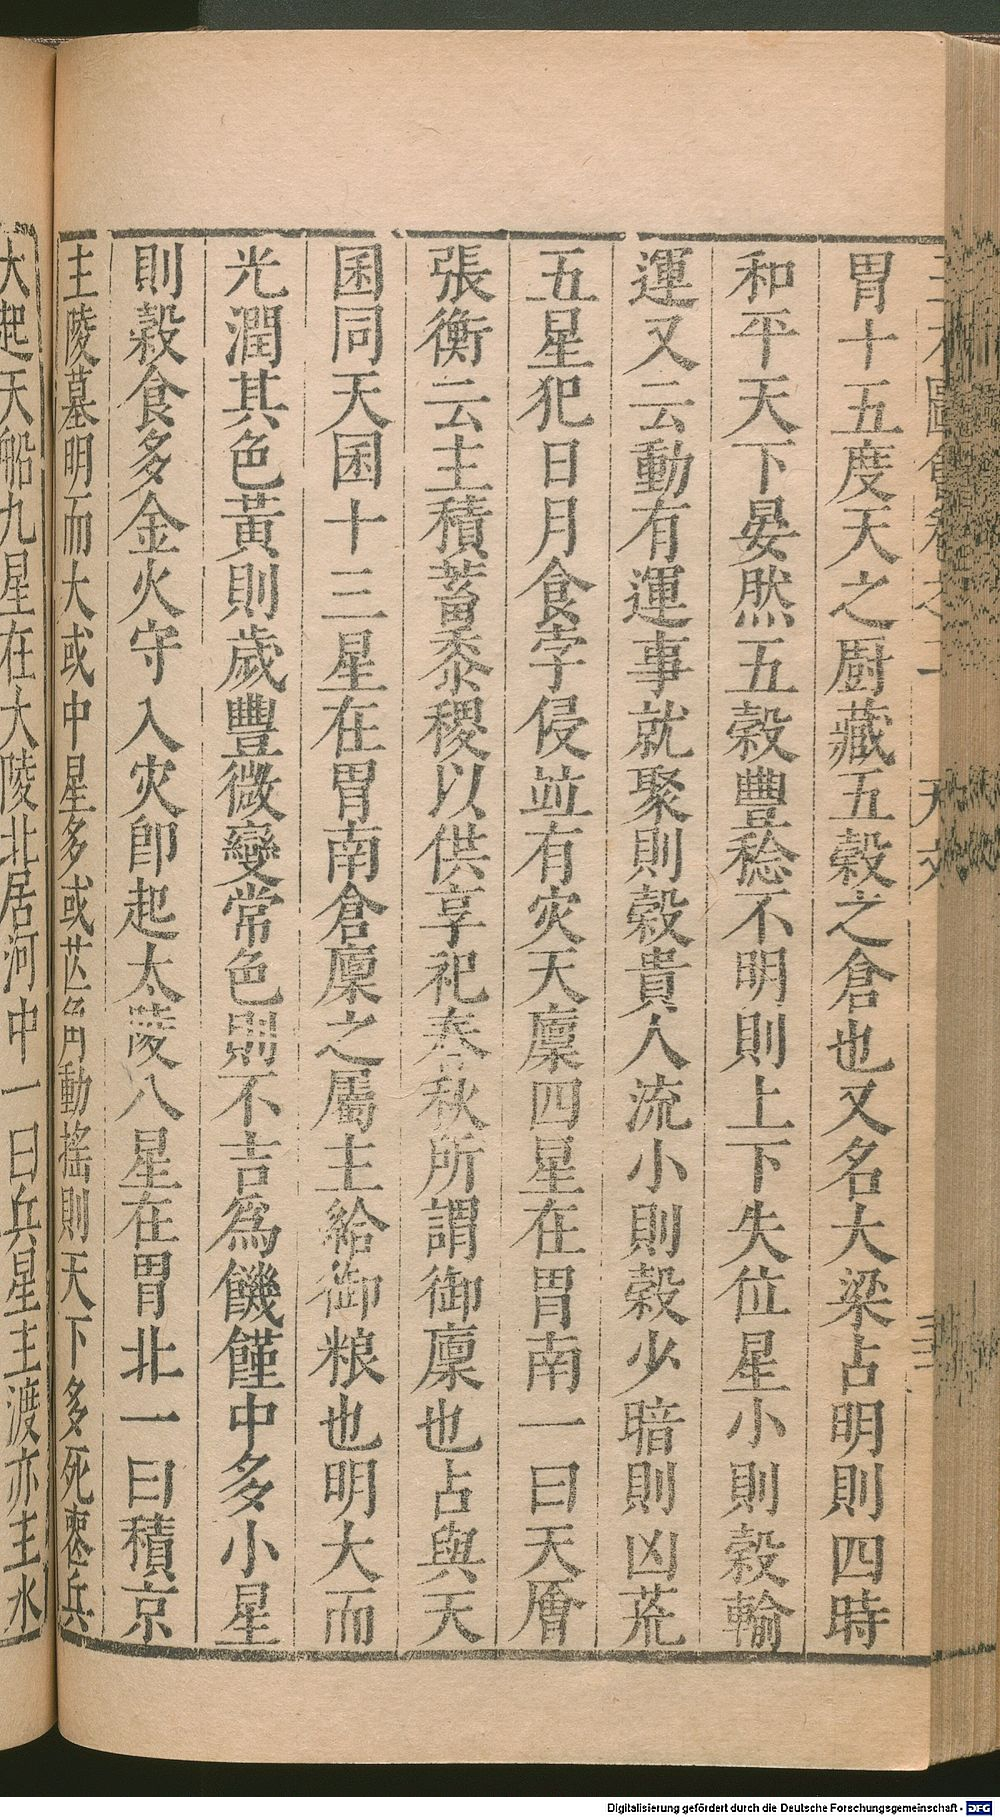 胃十五度天之厨藏五榖之倉也又名大梁占明則四時
和平天下晏然五榖豐稔不明則上下失位星小則榖輸
運又云動有運事就聚則榖貴人流小則榖少暗則凶荒
五星犯日月食孛侵並有灾天廩四星在胃南一曰天㕑
張衡云主積蓄黍稷以供享祀春秋所謂御廩也占與天
囷同天囷十三星在胃南倉廩之屬主給御粮也明大而
光潤其色黃則歲豐微變常色則不吉為饑饉中多小星
則榖食多金火守入灾卽起太陵八星在胃北一曰積京
主陵墓明而大或中星多或芒角動搖則天下多死喪兵
大起天船九星在大陵北居河中一曰兵星主渡亦主水
Digitalisierung gefördert durch die Deutsche Forschungsgemeinschaft - DFG